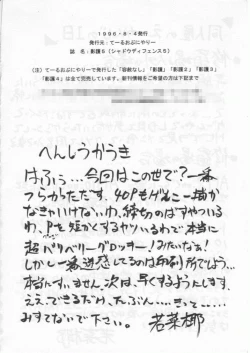 1996・8・4発行
発行元：てーるおぶにやりー
誌　名：影護5（シャドウディフェンス5）
（注）てーるおぶにやりーで発行した「容赦なし」「影護」「影護2」「影護3」
「影護4」は全て完売しています。新刊情報をご希望の方は下記まで
へんしうかうき
はふぅ…今回はこの世で？一番
つらかったです。40Pもゲんこー描か
なきゃいけないわ、締切のばすやついる
わ、Pを短うするヤツいるわで本当に
超ベリベリーグロッキー！みたいなる！
しかし一番迷惑してるのは印刷所でしょう…
本当にすいません。次は、早くするようにします。
ええ、できるだけ、たぶん……きっと……
みすてないで下さい。　若菜梛